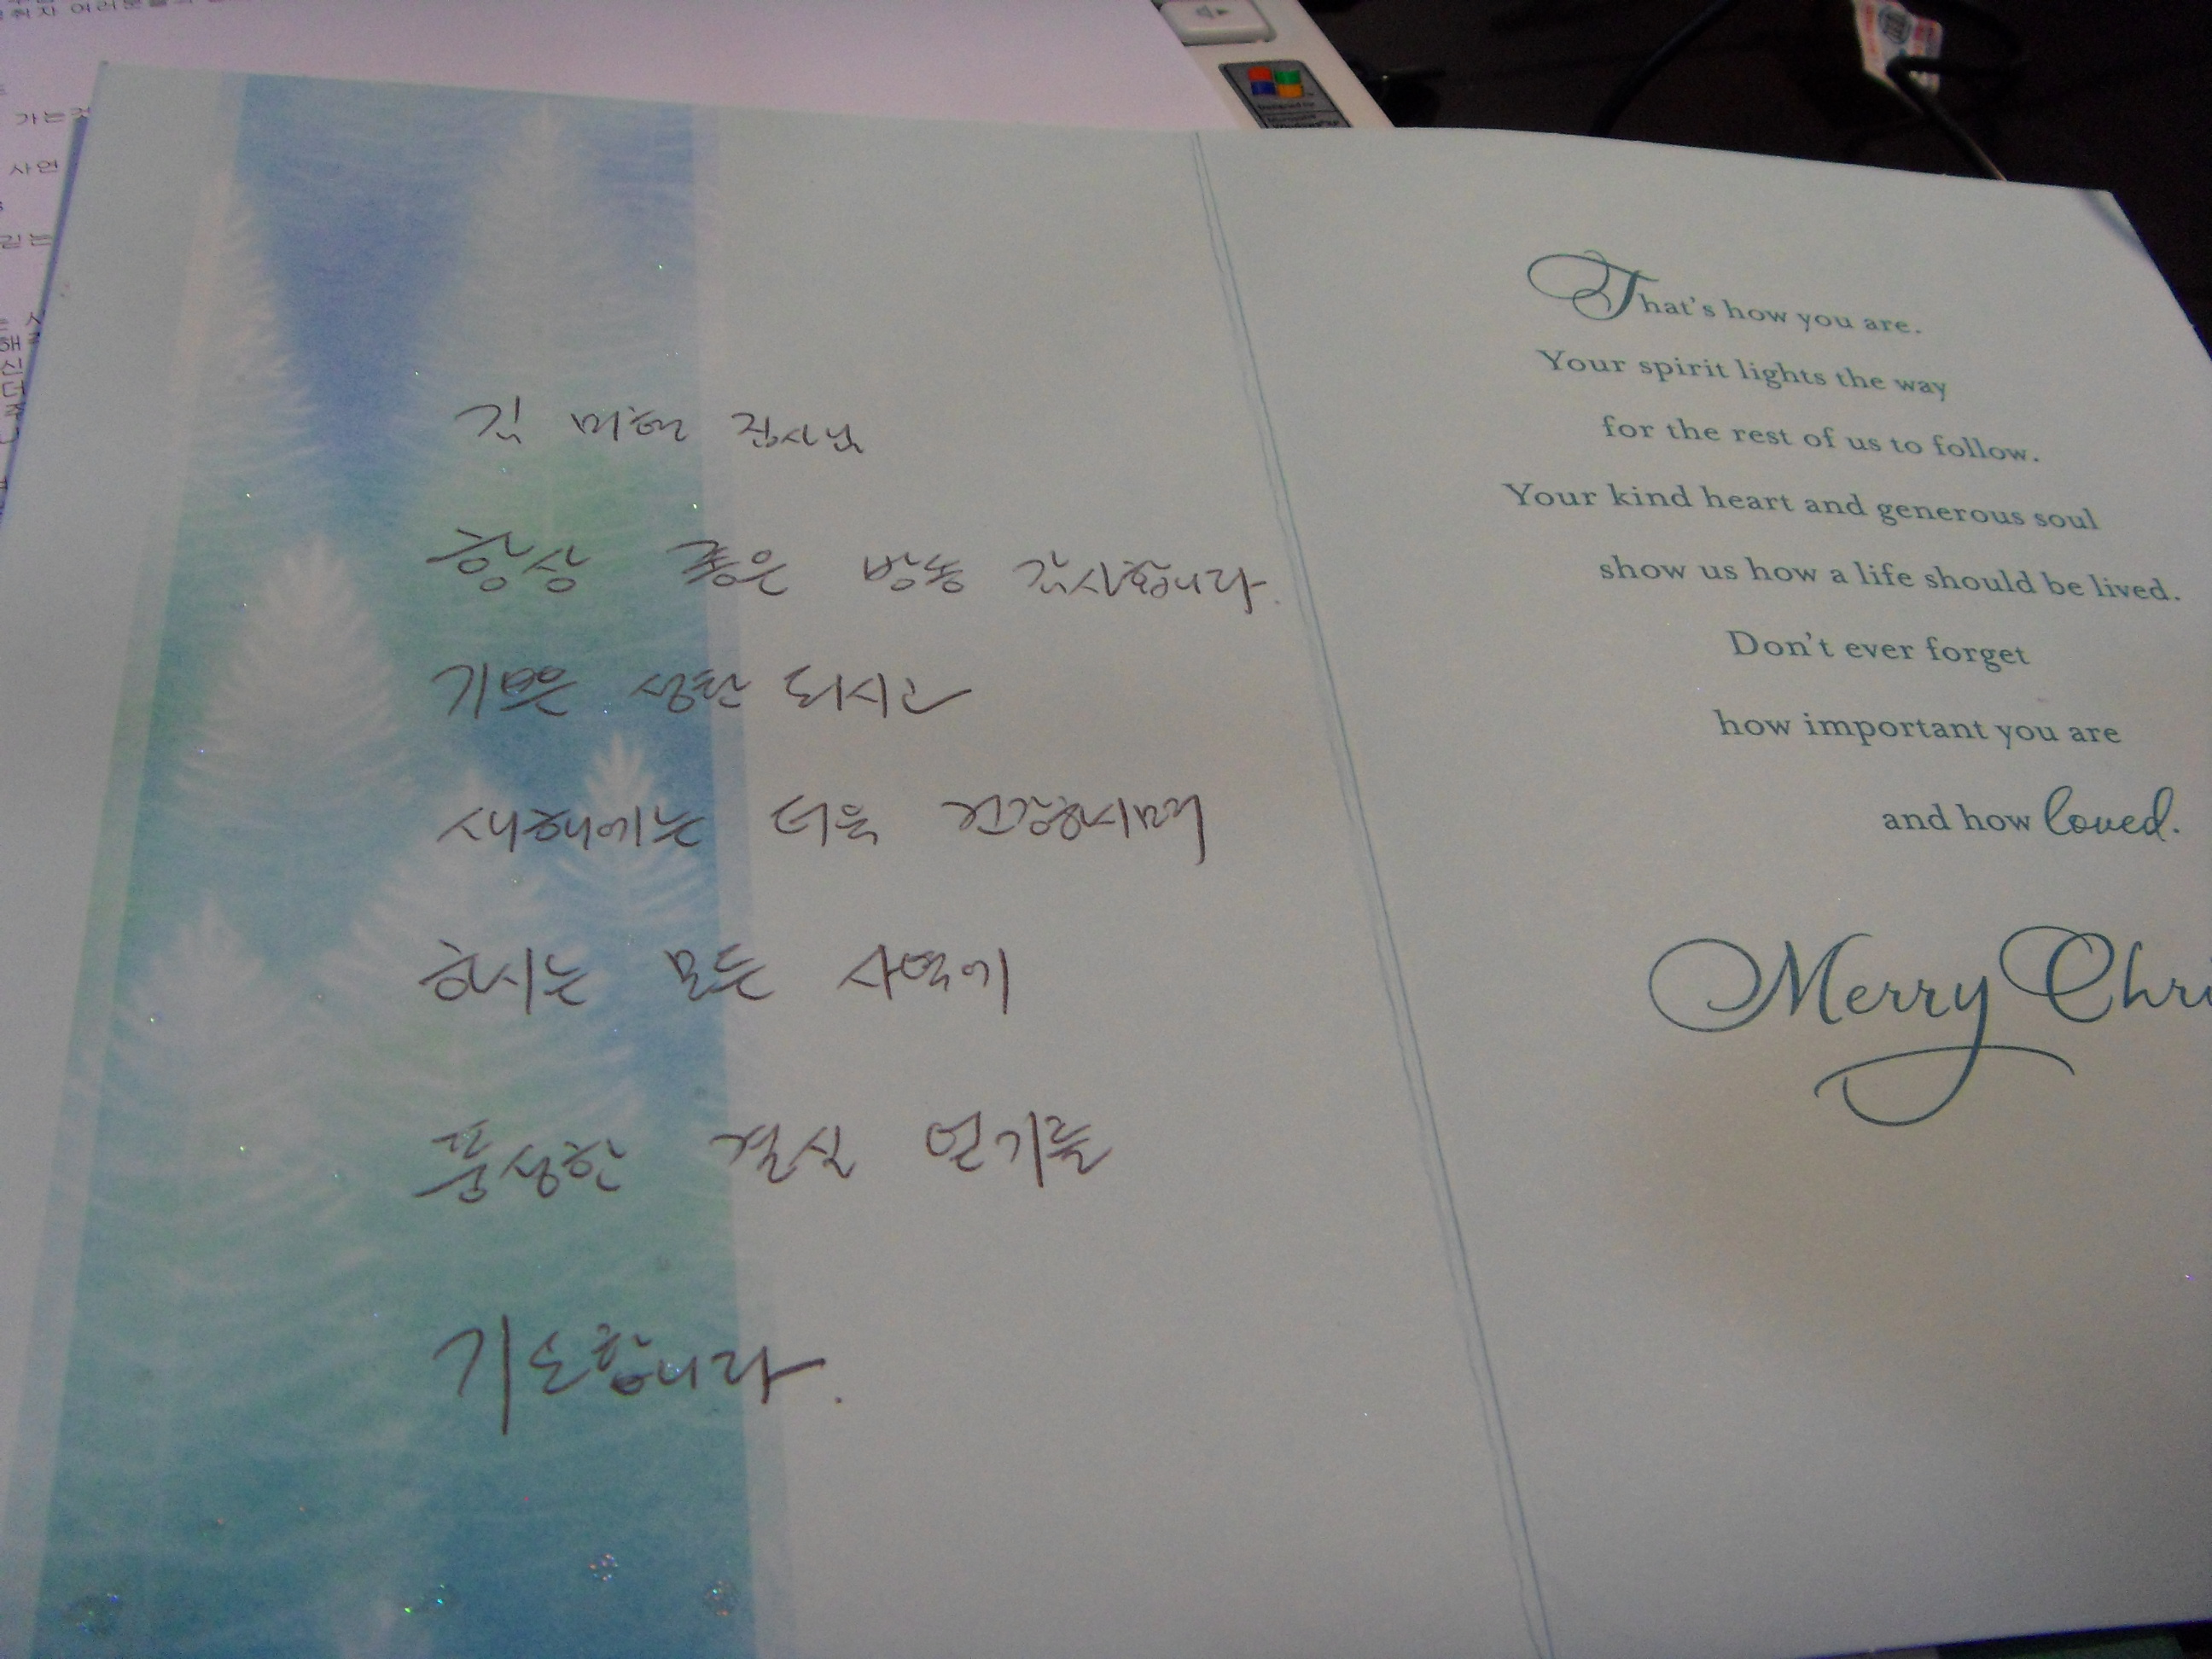 취자 여러분들의
가는것
사연
김 미혜 집사님
항상 좋은 방송 감사합니다.
기쁜 성탄 되시고
새해에는 더욱 건강하시며
하시는 모든 사역에
풍성한 결실 얻기를
기도합니다.
That's how you are.
Your spirit lights the way
for the rest of us to follow.
Your kind heart and generous soul
show us how a life should be lived.
Don't ever forget
how important you are
and how loved.
Merry Chri